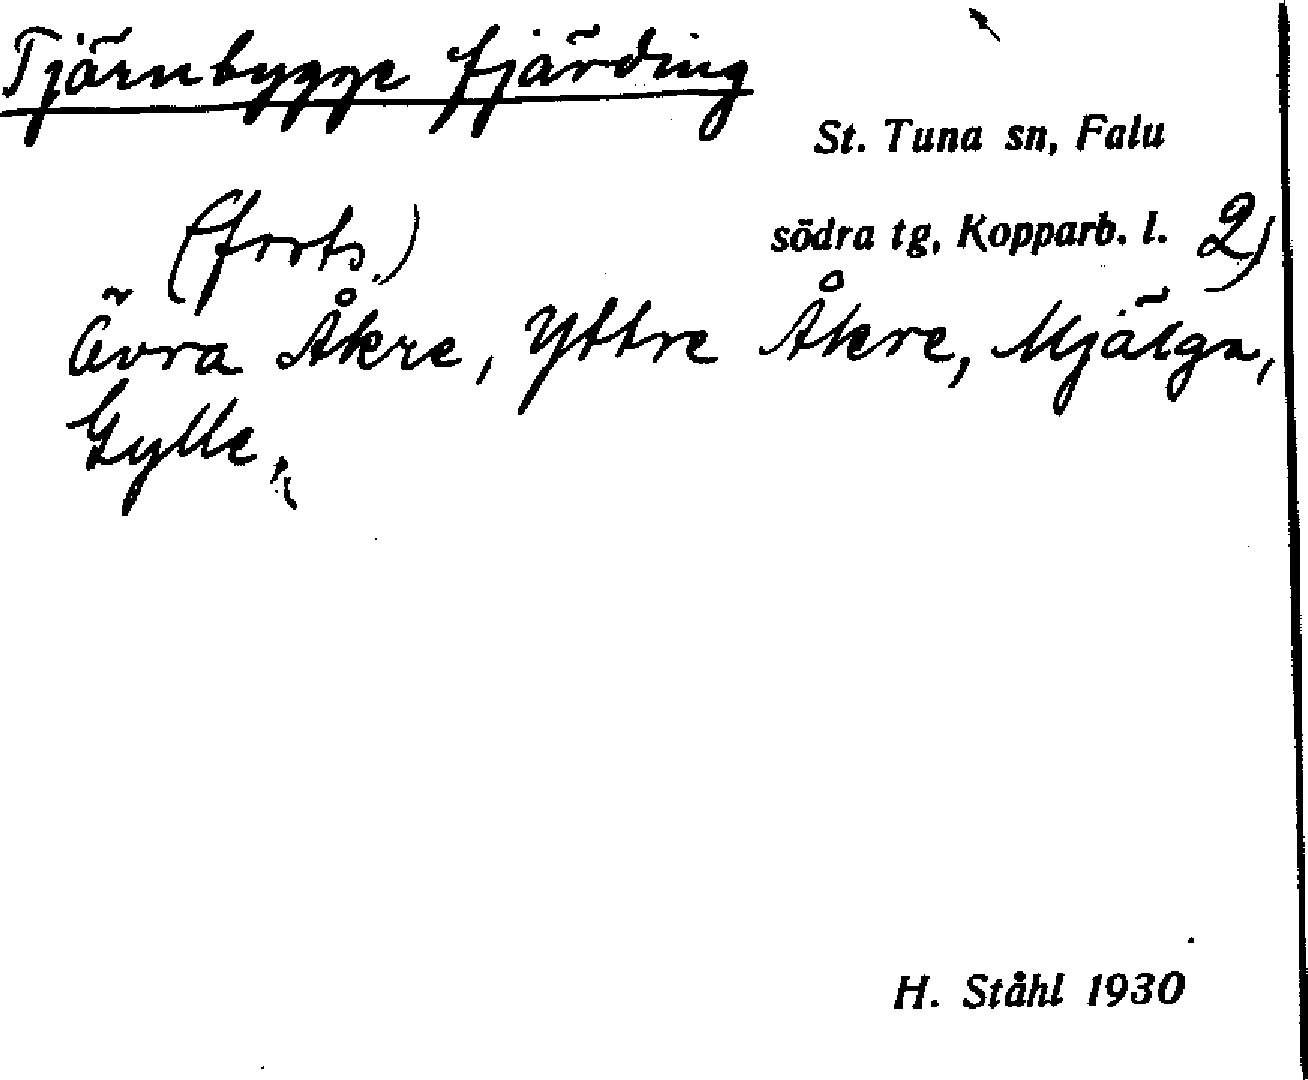 Tjärnbygge fjärding
St. Tuna sn, Falu
(forts.)
södra tg, Kopparb. l. 2)
Övra Åkre, Yttre Åkre, Mjälga,
Gylle,
H. Ståhl 1930